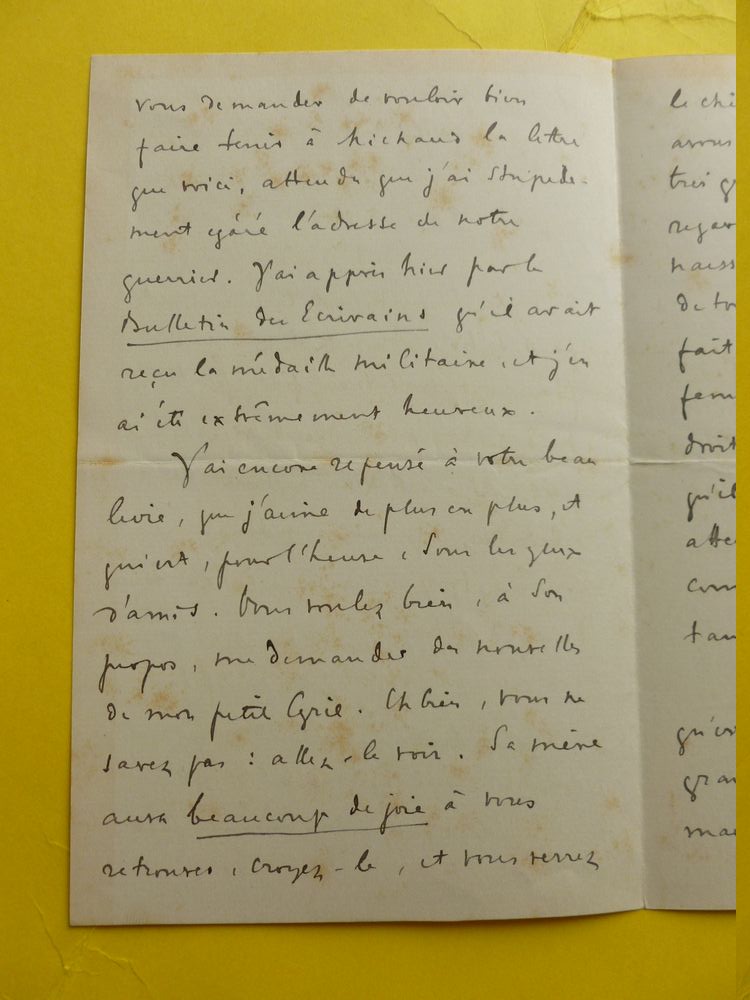 vous demander de vouloir bien
faire tenir à Michaud la lettre
que voici, attendu que j'ai stupide-
ment égaré l'adresse de notre
guerrier. J'ai appris hier par le
Bulletin des Ecrivains qu'il avait
reçu la médaille militaire, et j'en
ai été extrêmement heureux.
J'ai encore repensé à votre beau
livre, que j'aime de plus en plus, et
qui est, pour l'heure, sous les yeux
d'amis. Vous voulez bien, à son
propos, me demander des nouvelles
de mon petit Cyril. Eh bien, vous ne
savez pas : allez-le voir. Sa mère
aura beaucoup de joie à vous
retrouver, croyez-le, et vous verrez
le
avons
très
de
fait
droit
qu'il